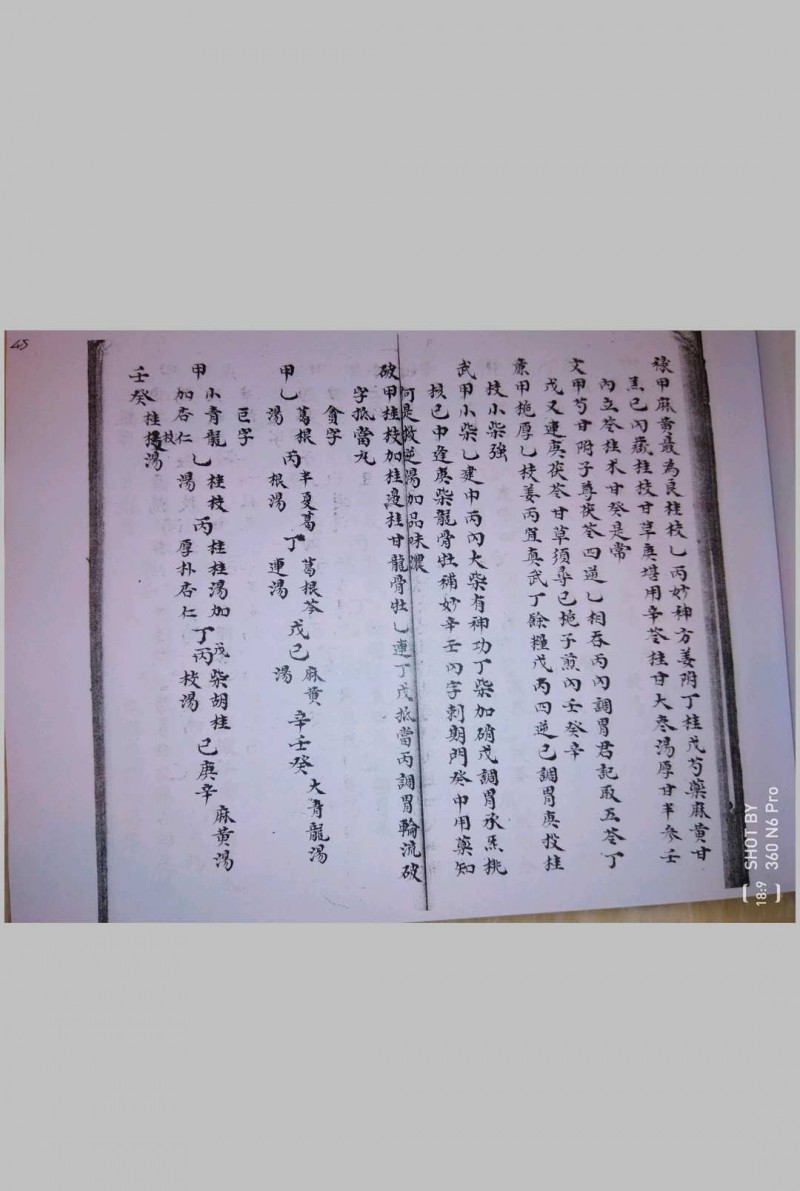 祿甲麻黃最為良桂枝乙丙妙神方姜附丁桂戊芍藥麻黃甘
己內藏桂枝甘草庚堪用辛苓桂甘大棗湯厚甘半參壬
內立苓桂朮甘癸是常
文甲芍甘附子尊茯苓四逆乙相吞丙內調胃君記取五苓丁
戊又連庚茯苓甘草須尋己梔子煎內壬癸辛
廉甲梔厚乙枝姜丙宜真武丁餘糧戊丙四逆己調胃庚投桂
枝小柴強
武甲小柴乙建中丙內大柴有神功丁柴加硝戊調胃承氣桃
核己中逢庚柴龍骨牡補妙辛壬內字刺期門癸中用藥知
何是救逆湯加品味濃
破甲桂枝加桂邊桂甘龍骨牡乙連丁戊抵當丙調胃輪流破
字抵當丸
貪字
甲乙葛根湯 丙半夏葛根湯 丁葛根芩連湯 戊己麻黃湯 辛壬癸大青龍湯
巨字
甲小青龍加杏仁 乙桂枝湯 丙桂枝湯加厚朴杏仁 丁丙戊柴胡桂枝湯 己庚辛麻黃湯
壬癸桂枝湯
45
SHOT BY
360 N6 Pro
18:9